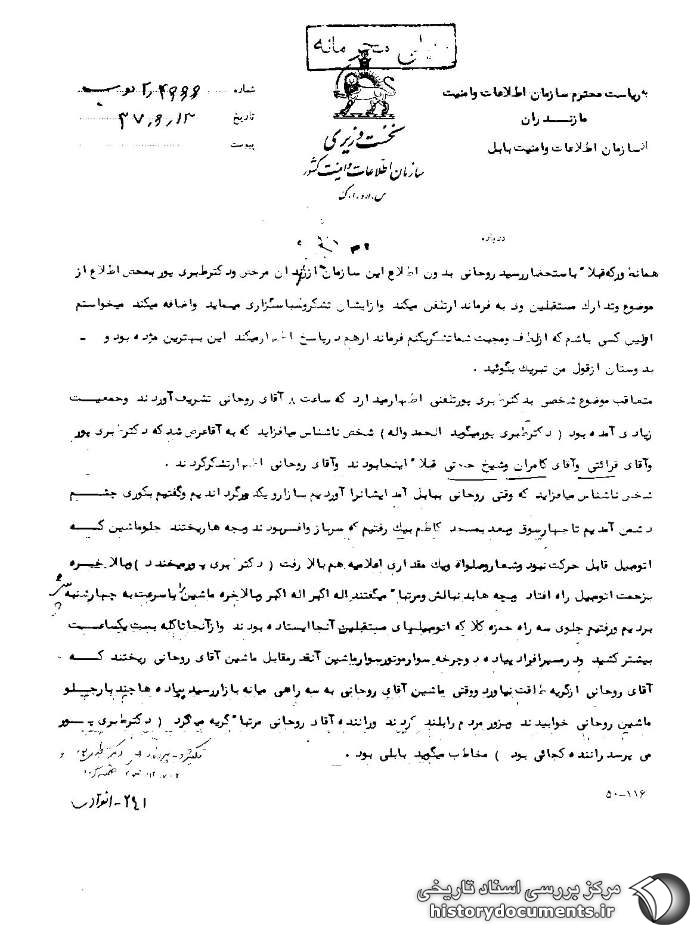 خیلی محرمانه
به ریاست محترم سازمان اطلاعات وامنیت
مازندران
از سازمان اطلاعات وامنیت بابل
نخست وزیری
سازمان اطلاعات و امنیت کشور
س.ا.و.ا.ک
شماره
تاریخ ۳۷٫۶٫۱۳
پیوست
درباره
همانطورکه قبلا" باستحضاررسید روحانی بدون اطلاع این سازمان اززندان مرخص ودکترطبری پور بمحض اطلاع از
موضوع وتدارک مستقبلین وی به فرماندار تلفن میکند وازایشان تشکروسپاسگزاری مینماید واضافه میکند میخواستم
اولین کسی باشم که ازلطف ومحبت شماتشکرکنم فرماندارهم درپاسخ اظهارمیکند این بهترین مژده بود و -
بدوستان ازقول من تبریک بگوئید .
متعاقب موضوع شخصی بدکترطبری پورتلفنی اظهارمیدارد که ساعت ۸ آقای روحانی تشریف آوردند وجمعیت
زیادی آمده بود ( دکترطبری پورمیگوید الحمدواله ) شخص ناشناس میافزاید که به آقاعرض شد که دکترطبری پور
وآقای قرائتی وآقای کامران وشیخ حجتی قبلا" اینجابودند وآقای روحانی اظهارتشکرکردند .
شخص ناشناس میافزاید که وقتی روحانی ببابل آمد ایشانرا آوردیم سازارو یکدورگرداندیم وگفتیم بکوری چشم
دشمن آمدیم تاچهارسوق وبعد بمسجد کاظم بیک رفتیم که سرباز وافسربودند وبچه هاریختند جلوماشین کـه
اتومبیل قابل حرکت نبود وشعاروصلواة ویک مقداری اعلامیه هم بالا رفت ( دکتر طبری پورمیخندد ) وبالاخیره
بزحمت اتومبیل راه افتاد وبچه هابدنبالش ومرتبا" میگفتند اله اکبر اله اکبر وبالاخره ماشین را باسرعت به چهارشنبه
بردیم ورفتیم جلوی سه راه حمزه کلا که اتومبیلهای مستقبلین آنجاایستاده بودند وازآنجاتاکله بست یکساعت
بیشتر کشید ودرمسیرافراد پیاده دوچرخه سوارموتورسوارماشین آنقدرمقابل ماشین آقای روحانی ریختند کـه
آقای روحانی ازگریه طاقت نیاورد ووقتی ماشین آقای روحانی به سه راهی میانه بازاررسید پیاده هاچند بارجلو
ماشین روحانی خوابیدند وبزور مردم رابلند کردند وراننده آقای روحانی مرتبا" گریه میکرد ( دکترطبری پـور
می پرسد راننده کجائی بود ) مخاطب میگوید بابلی بود .
۵۰-۱۱۶
مرکز بررسی اسناد تاریخی
historydocuments.ir